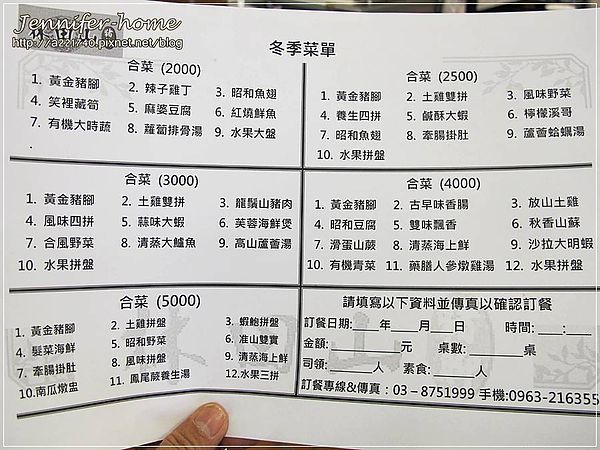 Jennifer-home
http://a221740.pixnet.net/blog
林田山
冬季菜單
合菜 (2000)
1. 黃金豬腳 2. 辣子雞丁 3. 昭和魚翅
4. 笑裡藏筍 5. 麻婆豆腐 6. 紅燒鮮魚
7. 有機大時蔬 8. 蘿蔔排骨湯 9. 水果大盤
合菜 (2500)
1. 黃金豬腳 2. 土雞雙拼 3. 風味野菜
4. 養生四拼 5. 鹹酥大蝦 6. 檸檬溪哥
7. 昭和魚翅 8. 牽腸掛肚 9. 蘆薈蛤蠣湯
10. 水果拼盤
合菜 (3000)
1. 黃金豬腳 2. 土雞雙拼 3. 龍鬚山豬肉
4. 風味四拼 5. 蒜味大蝦 6. 芙蓉海鮮煲
7. 合風野菜 8. 清蒸大鱸魚 9. 高山蘆薈湯
10. 水果拼盤
合菜 (4000)
1. 黃金豬腳 2. 古早味香腸 3. 放山土雞
4. 昭和豆腐 5. 雙味飄香 6. 秋香山蘇
7. 滑蛋山蕨 8. 清蒸海上鮮 9. 沙拉大明蝦
10. 有機青菜 11. 藥膳人參燉雞湯 12. 水果拼盤
合菜 (5000)
1. 黃金豬腳 2. 土雞拼盤 3. 蝦鮑拼盤
4. 髮菜海鮮 5. 昭和野菜 6. 准山雙寶
7. 牽腸掛肚 8. 風味拼盤 9. 清蒸海上鮮
10.南瓜燉盅 11. 鳳尾蕨養生湯 12.水果三拼
請填寫以下資料並傳真以確認訂餐
訂餐日期:___年___月___日 時間:___:___
金額:________元 桌數:______桌
司領:_____人 素食:_____人
訂餐專線&傳真:03－8751999 手機:0963-216355